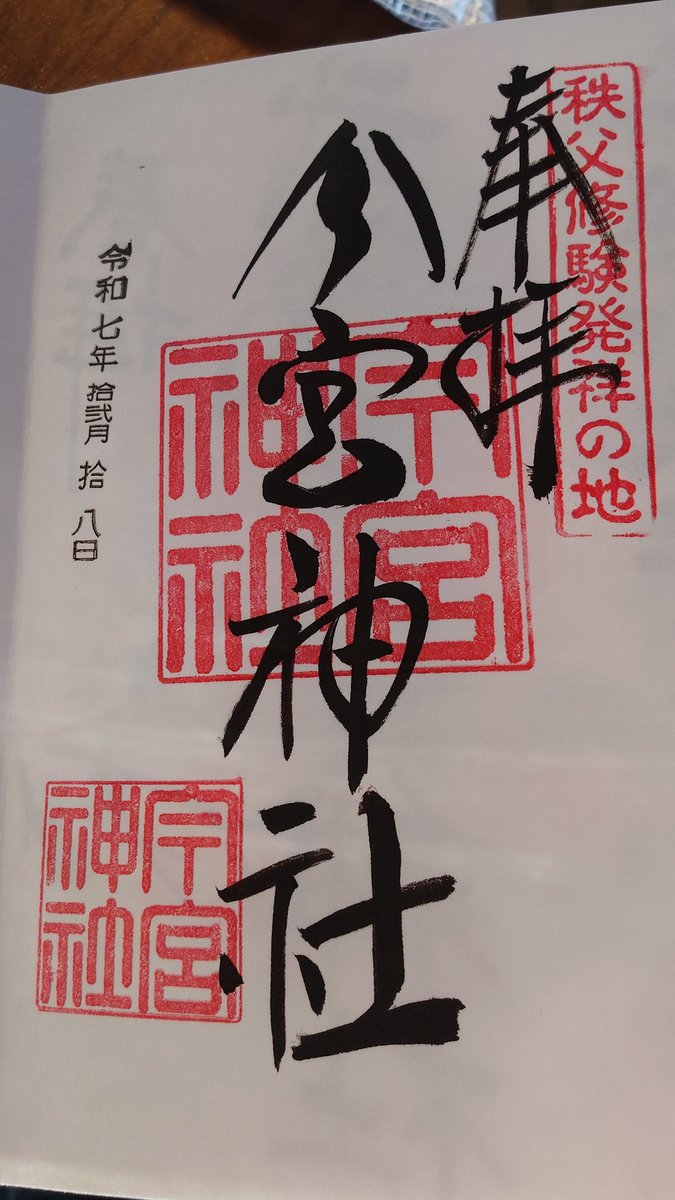 秩父修験発祥の地
奉拝
今宮神社
今宮
神社
令和七年拾弐月拾八日
今宮
神社